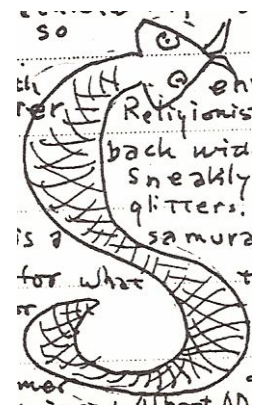 so
th en
rer Religionis
back wid
sneakly
glitters.
is a samura
for what t
or
mer